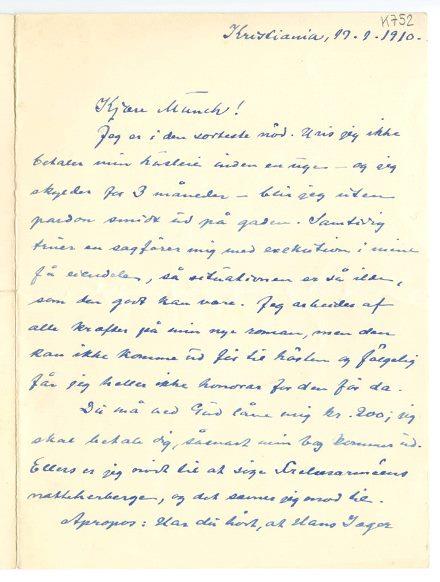 K752
Kristiania, 17.9.1910.
Kjære Munch!
Jeg er i den sorteste nød. Hvis jeg ikke
betaler min husleie inden en uge – og jeg
skylder for 3 måneder – blir jeg uten
pardon smidt ud på gaden. Samtidig
truer en sagfører mig med exekution i mine
få eiendele, så situationen er så ilde,
som den godt kan være. Jeg arbeider af
alle kræfter på min nye roman, men den
kan ikke komme ud før til høsten og følgelig
får jeg heller ikke honorar for den før da.
Du må ved Gud låne mig kr. 200; jeg
skal betale dig, såsnart min bog kommer ud.
Ellers er jeg nødt til at søge Frelsesarméens
natteherberge, og det savner jeg mod til.
Apropos: Har du hørt, at Hans Jæger